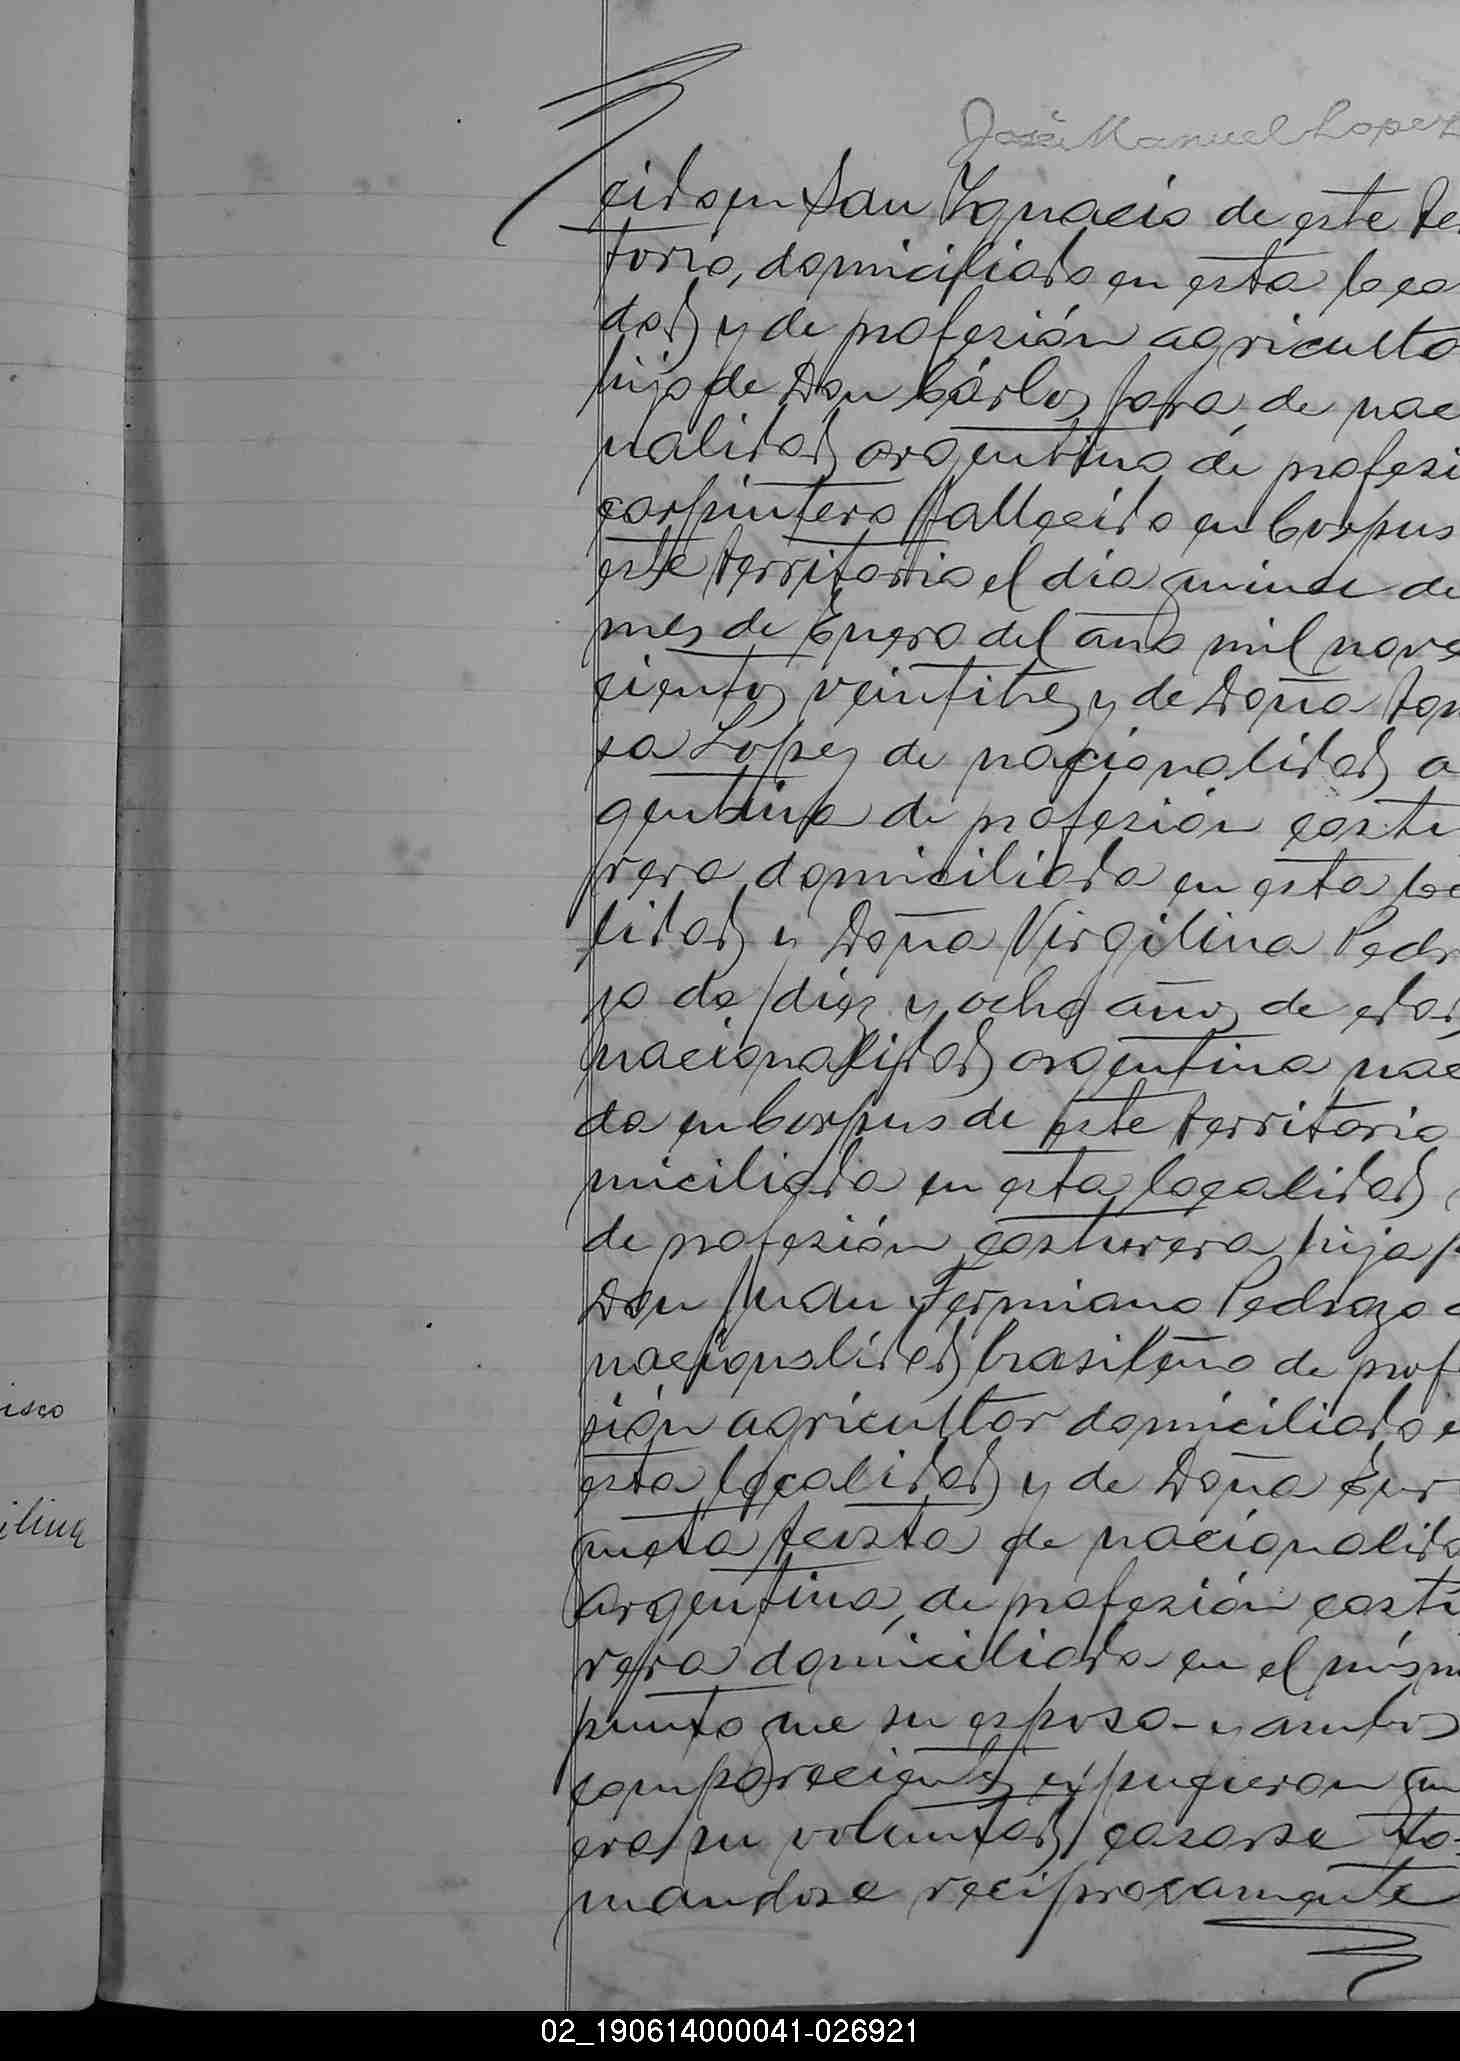 José Manuel Lopez
cido en San Ignacio de este te
torio, domiciliado en esta loca
dad y de profesión agriculto
hijo de Don Cárlos Jara, de nac
nalidad argentino de profesi
carpintero fallecido en Corpus
este territorio el día quince de
mes de Enero del año mil nove
cientos veintitres y de Doña
sa Lopez de nacionalidad a
gentina de profesión costu
rera domiciliada en esta lo
lidad y Doña Virgilina Pedr
zo de diez y ocho años de edad
nacionalidad argentina nac
da en Corpus de este territorio
miciliada en esta localidad
de profesión costurera hija
Don Juan Fermiano Pedrozo
nacionalidad brasileño de prof
sión agricultor domiciliado e
esta localidad y de Doña
de nacionalida
argentina, de profesión costu
rera domiciliada en el mism
punto que su esposo - y ambos
comparecientes expucieron qu
era su voluntad casarse to-
mandose reciprocamente
isco
ilina
02_190614000041-026921